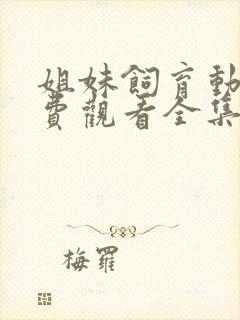 姐妹飼育動
費觀看全集
梅羅